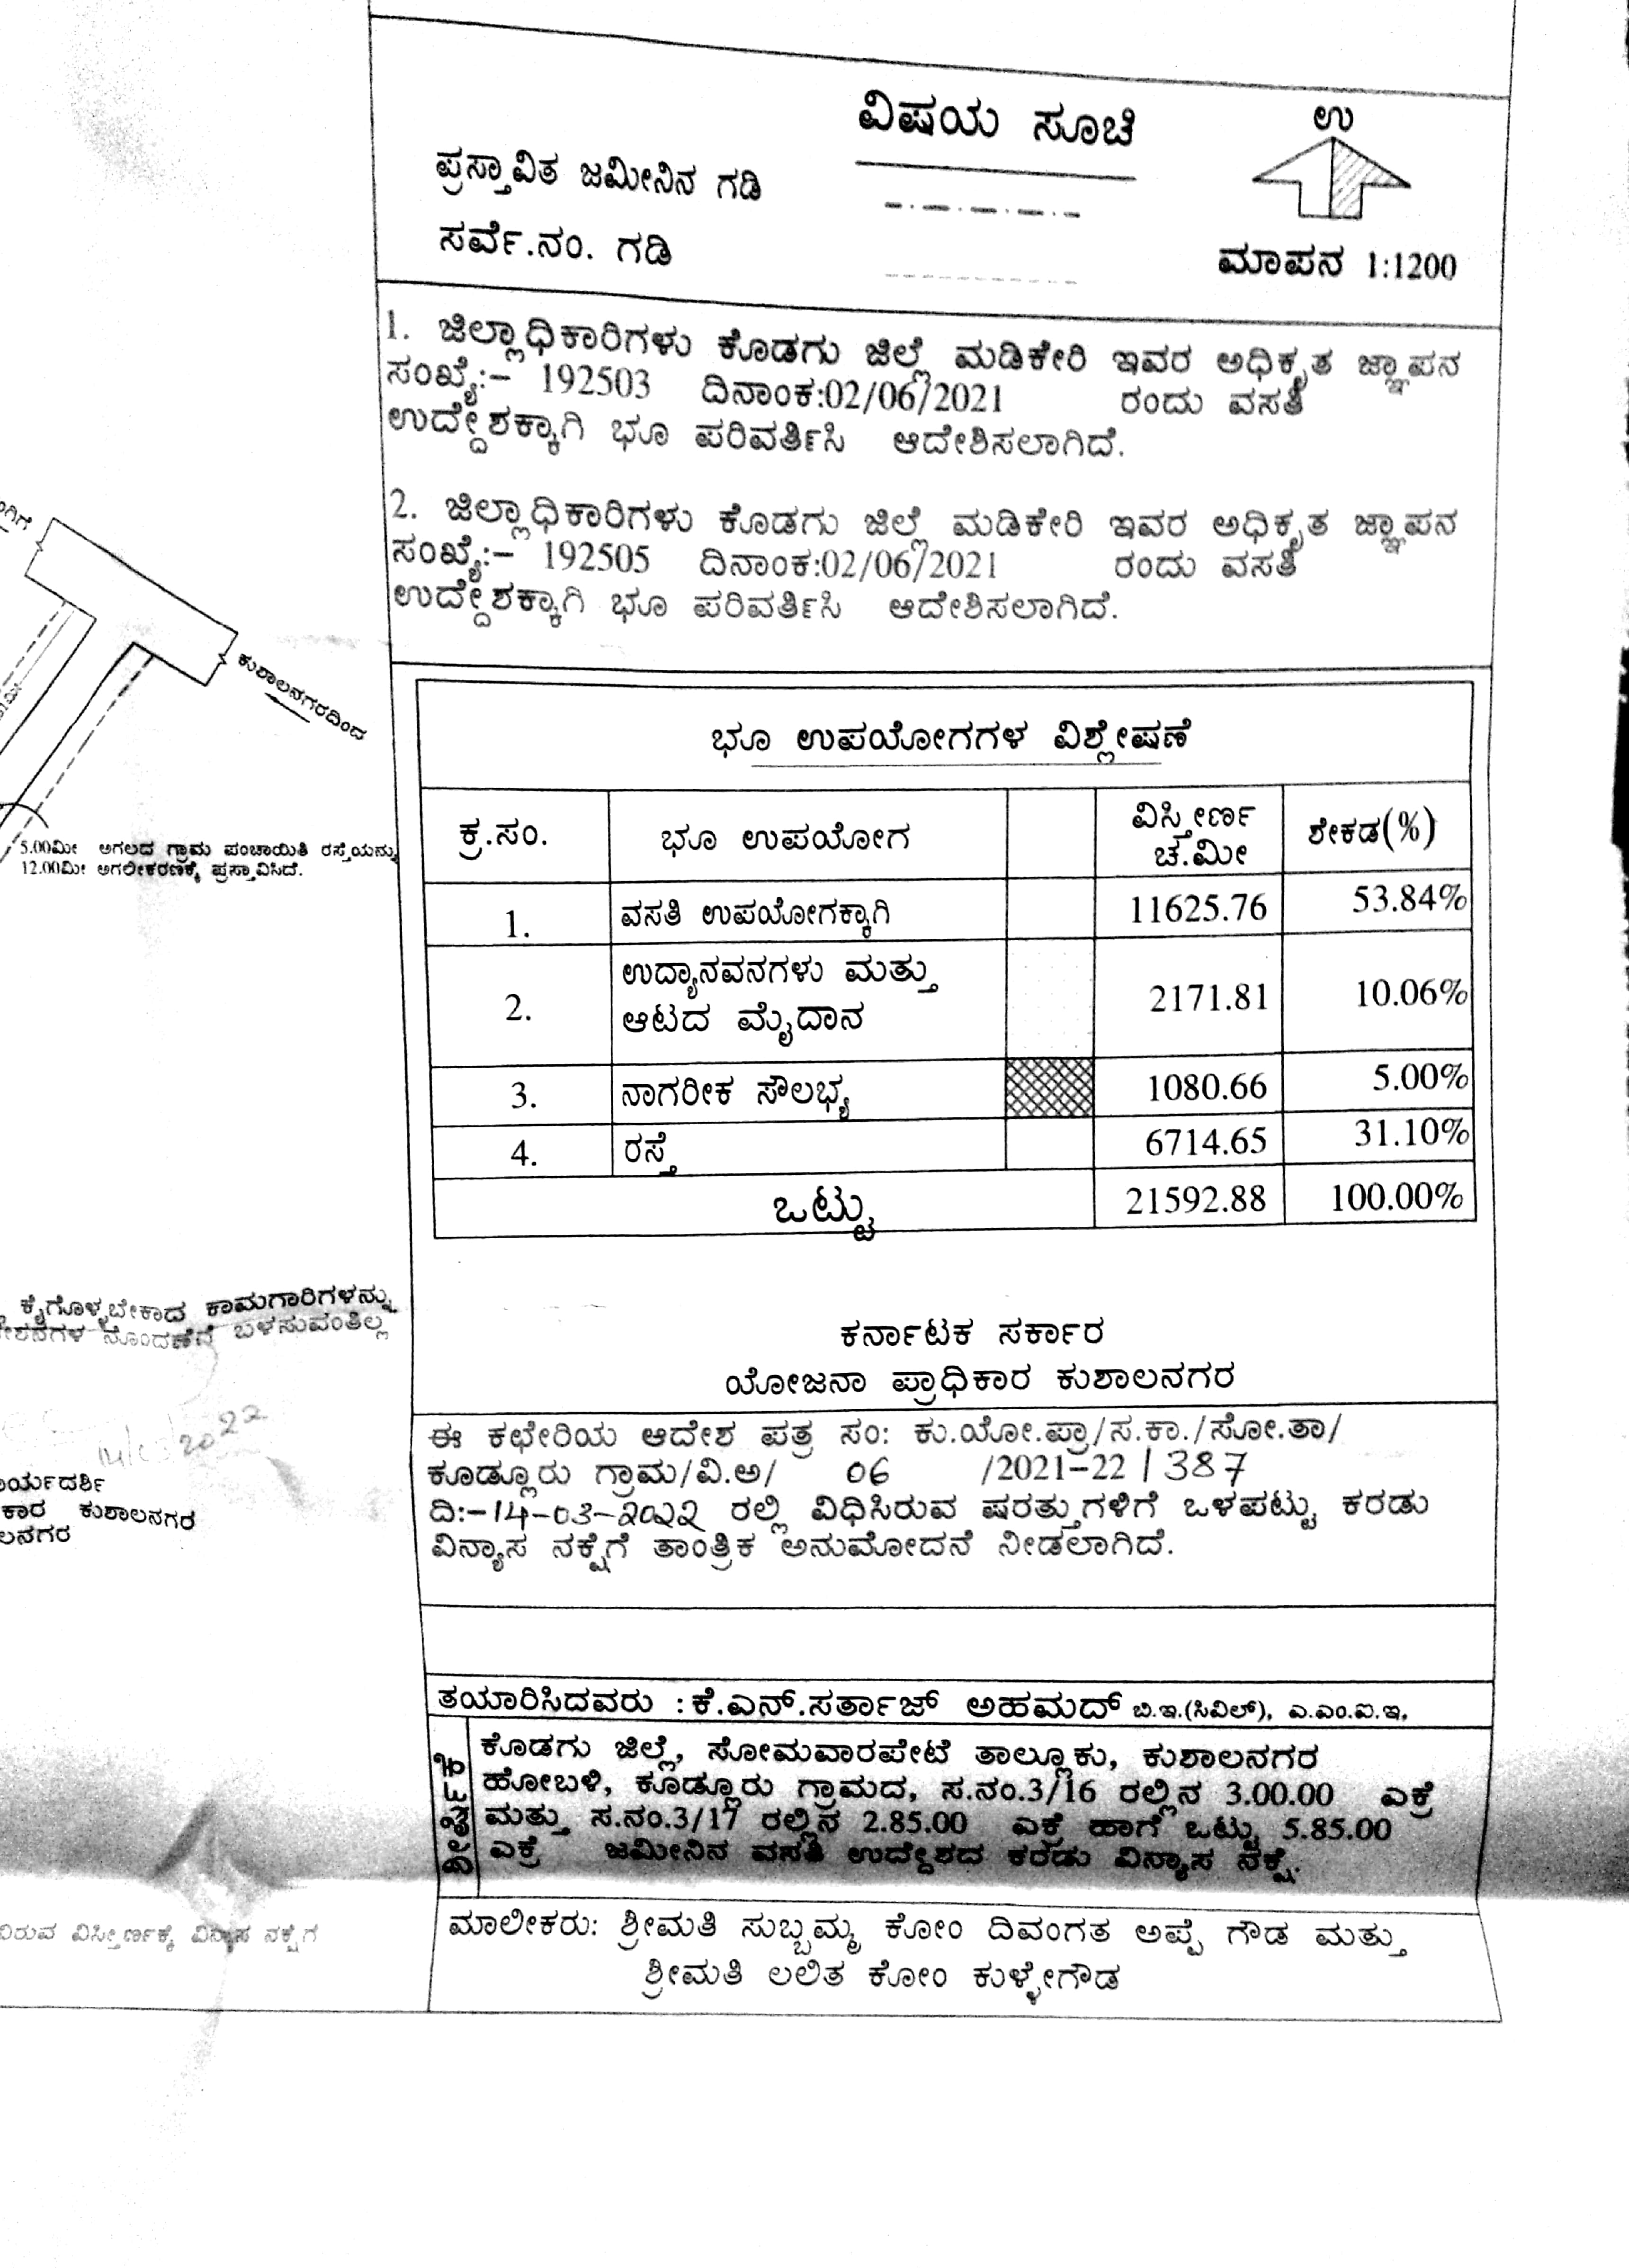 ವಿಷಯ ಸೂಚಿ
ಉ
ಪ್ರಸ್ತಾವಿತ ಜಮೀನಿನ ಗಡಿ
ಸರ್ವೆ.ನಂ. ಗಡಿ
ಮಾಪನ 1:1200
1. ಜಿಲ್ಲಾಧಿಕಾರಿಗಳು ಕೊಡಗು ಜಿಲ್ಲೆ ಮಡಿಕೇರಿ ಇವರ ಅಧಿಕೃತ ಜ್ಞಾಪನ
ಸಂಖ್ಯೆ:- 192503 ದಿನಾಂಕ:02/06/2021 ರಂದು ವಸತಿ
ಉದ್ದೇಶಕ್ಕಾಗಿ ಭೂ ಪರಿವರ್ತಿಸಿ ಆದೇಶಿಸಲಾಗಿದೆ.
2. ಜಿಲ್ಲಾಧಿಕಾರಿಗಳು ಕೊಡಗು ಜಿಲ್ಲೆ ಮಡಿಕೇರಿ ಇವರ ಅಧಿಕೃತ ಜ್ಞಾಪನ
ಸಂಖ್ಯೆ:- 192505 ದಿನಾಂಕ:02/06/2021 ರಂದು ವಸತಿ
ಉದ್ದೇಶಕ್ಕಾಗಿ ಭೂ ಪರಿವರ್ತಿಸಿ ಆದೇಶಿಸಲಾಗಿದೆ.
ಕುಶಾಲನಗರದಿಂದ
5.00ಮೀ ಅಗಲದ ಗ್ರಾಮ ಪಂಚಾಯಿತಿ ರಸ್ತೆಯನ್ನು
12.00ಮೀ ಅಗಲೀಕರಣಕ್ಕೆ ಪ್ರಸ್ತಾವಿಸಿದೆ.
ಭೂ ಉಪಯೋಗಗಳ ವಿಶ್ಲೇಷಣೆ
ಕ್ರ.ಸಂ. ಭೂ ಉಪಯೋಗ ವಿಸ್ತೀರ್ಣ ಚ.ಮೀ ಶೇಕಡ(%)
1. ವಸತಿ ಉಪಯೋಗಕ್ಕಾಗಿ 11625.76 53.84%
2. ಉದ್ಯಾನವನಗಳು ಮತ್ತು
ಆಟದ ಮೈದಾನ 2171.81 10.06%
3. ನಾಗರೀಕ ಸೌಲಭ್ಯ 1080.66 5.00%
4. ರಸ್ತೆ 6714.65 31.10%
ಒಟ್ಟು 21592.88 100.00%
ಕೈಗೊಳ್ಳಬೇಕಾದ ಕಾಮಗಾರಿಗಳನ್ನು
ನೊಂದಣಿಗೆ ಬಳಸುವಂತಿಲ್ಲ
ಕರ್ನಾಟಕ ಸರ್ಕಾರ
ಯೋಜನಾ ಪ್ರಾಧಿಕಾರ ಕುಶಾಲನಗರ
ಈ ಕಛೇರಿಯ ಆದೇಶ ಪತ್ರ ಸಂ: ಕು.ಯೋ.ಪ್ರಾ/ಸ.ಕಾ./ಸೋ.ತಾ/
ಕೂಡ್ಲೂರು ಗ್ರಾಮ/ವಿ.ಅ/ 06 /2021-22/387
ದಿ:-14-03-2022 ರಲ್ಲಿ ವಿಧಿಸಿರುವ ಷರತ್ತುಗಳಿಗೆ ಒಳಪಟ್ಟು ಕರಡು
ವಿನ್ಯಾಸ ನಕ್ಷೆಗೆ ತಾಂತ್ರಿಕ ಅನುಮೋದನೆ ನೀಡಲಾಗಿದೆ.
2022
ರ್ಯದರ್ಶಿ
ಕಾರ ಕುಶಾಲನಗರ
ಲನಗರ
ತಯಾರಿಸಿದವರು : ಕೆ.ಎನ್.ಸರ್ತಾಜ್ ಅಹಮದ್ ಬಿ.ಇ.(ಸಿವಿಲ್), ಎ.ಎಂ.ಐ.ಇ,
ಕೊಡಗು ಜಿಲ್ಲೆ, ಸೋಮವಾರಪೇಟೆ ತಾಲ್ಲೂಕು, ಕುಶಾಲನಗರ
ಹೋಬಳಿ, ಕೂಡ್ಲೂರು ಗ್ರಾಮದ, ಸ.ನಂ.3/16 ರಲ್ಲಿನ 3.00.00 ಎಕ್ರೆ
ಮತ್ತು ಸ.ನಂ.3/17 ರಲ್ಲಿನ 2.85.00 ಎಕ್ರೆ ಹಾಗೆ ಒಟ್ಟು 5.85.00
ಎಕ್ರೆ ಜಮೀನಿನ ವಸತಿ ಉದ್ದೇಶದ ಕರಡು ವಿನ್ಯಾಸ ನಕ್ಷೆ.
ವಿರುವ ವಿಸ್ತೀರ್ಣಕ್ಕೆ ವಿನ್ಯಾಸ ನಕ್ಷೆಗ
ಮಾಲೀಕರು: ಶ್ರೀಮತಿ ಸುಬ್ಬಮ್ಮ ಕೋಂ ದಿವಂಗತ ಅಪ್ಪೆ ಗೌಡ ಮತ್ತು
ಶ್ರೀಮತಿ ಲಲಿತ ಕೋಂ ಕುಳ್ಳೇಗೌಡ